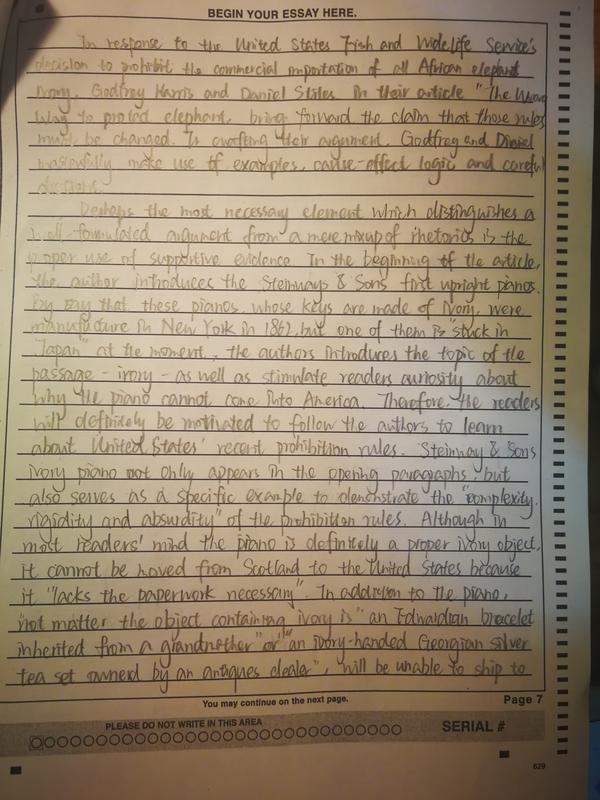 BEGIN YOUR ESSAY HERE.
In response to the United States Fish and Widelife Service's
decision to prohibit the commercial importation of all African elephant
Ivory, Godfrey Harris and Daniel Stiles in their article "The Wrong
Way to protect elephant, bring forward the claim that those rules
must be changed. In crafting their argument, Godfrey and Daniel
masterfully make use of examples, cause-effect logic and careful
dictions.
Perhaps the most necessary element which distinguishes a
well-formulated argument from a mere mixup of rhetorics is the
proper use of supportive evidence. In the beginning of the article,
the author introduces the Steinways & Sons first upright pianos.
By say that these pianos, whose keys are made of ivory, were
manufacture in New York in 1862, but one of them is "stuck in
Japan" at the moment, the authors introduces the topic of the
passage - ivory - as well as stimulate readers curiosity about
why the piano cannot come into America. Therefore, the readers
will definitely be motivated to follow the authors to learn
about United States' recent prohibition rules. Steinway & Sons
ivory piano not only appears in the opening paragraphs, but
also serves as a specific example to demonstrate the "complexity,
rigidity and absurdity" of the prohibition rules. Although in
most readers' mind the piano is definitely a proper ivory object,
it cannot be moved from Scotland to the United States because
it "lacks the paperwork necessary". In addiction to the piano,
not matter the object containing ivory is "an Edwardian bracelet
inherited from a grandmother" or "an ivory-handed Georgian silver
tea set ownerd by an antiques dealer", will be unable to ship to
You may continue on the next page.
Page 7
PLEASE DO NOT WRITE IN THIS AREA
SERIAL #
629